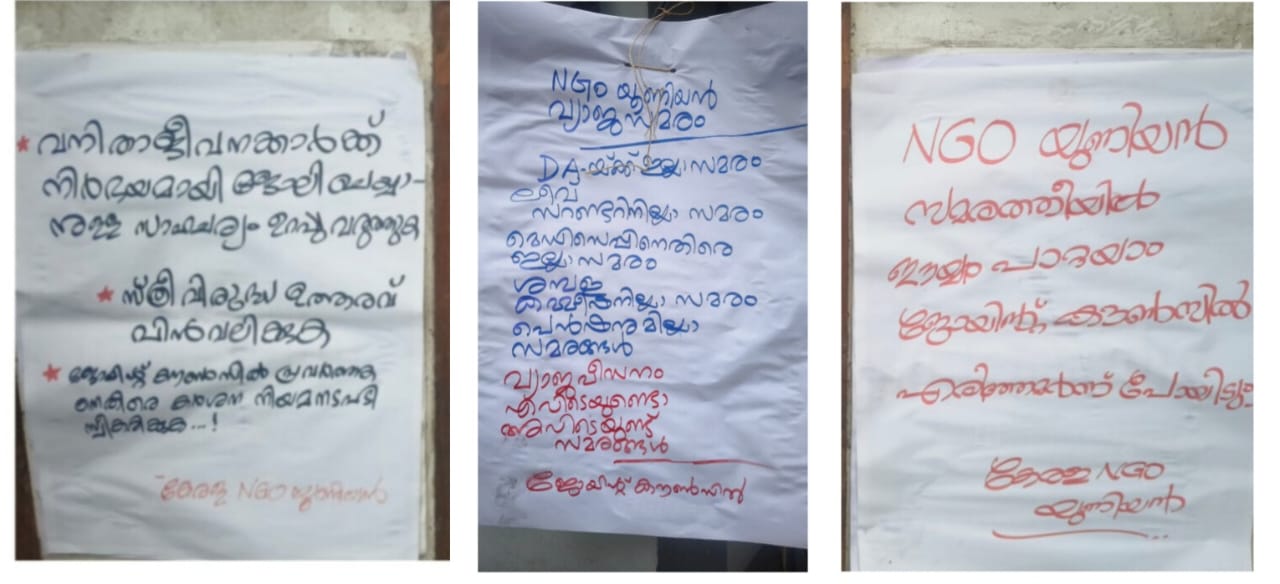 ★ വനിതാജീവനക്കാർക്ക്
നിർഭയമായി ജോലി ചെയ്യാ-
നുള്ള സാഹചര്യം ഉറപ്പുവരുത്തുക
★ സ്ത്രീ വിരുദ്ധ ഉത്തരവ്
പിൻവലിക്കുക
★ ജോയിന്റ് കൗൺസിൽ പ്രവർത്തക
നെതിരെ കർശന നിയമനടപടി
സ്വീകരിക്കുക...!
കേരള NGO യൂണിയൻ
NGO യൂണിയൻ
വ്യാജസമരം
DA-യ്ക്ക് ഇല്ലാ സമരം
ലീവ്
സറണ്ടറിനില്ലാ സമരം
മെഡിസെപ്പിനെതിരെ
ഇല്ലാ സമരം
ശമ്പള
കമ്മീഷനില്ലാ സമരം
പെൻഷനുമില്ലാ
സമരങ്ങൾ
വ്യാജപീഡനം
എവിടെയുണ്ടോ
അവിടെയുണ്ട്
സമരങ്ങൾ
ജോയിന്റ് കൗൺസിൽ
NGO യൂണിയൻ
സമരത്തീയിൽ
ഈയ്യാം പാറ്റയാം
ജോയിന്റ് കൗൺസിൽ
എരിഞ്ഞമർന്ന് പോയിടും
കേരള NGO
യൂണിയൻ